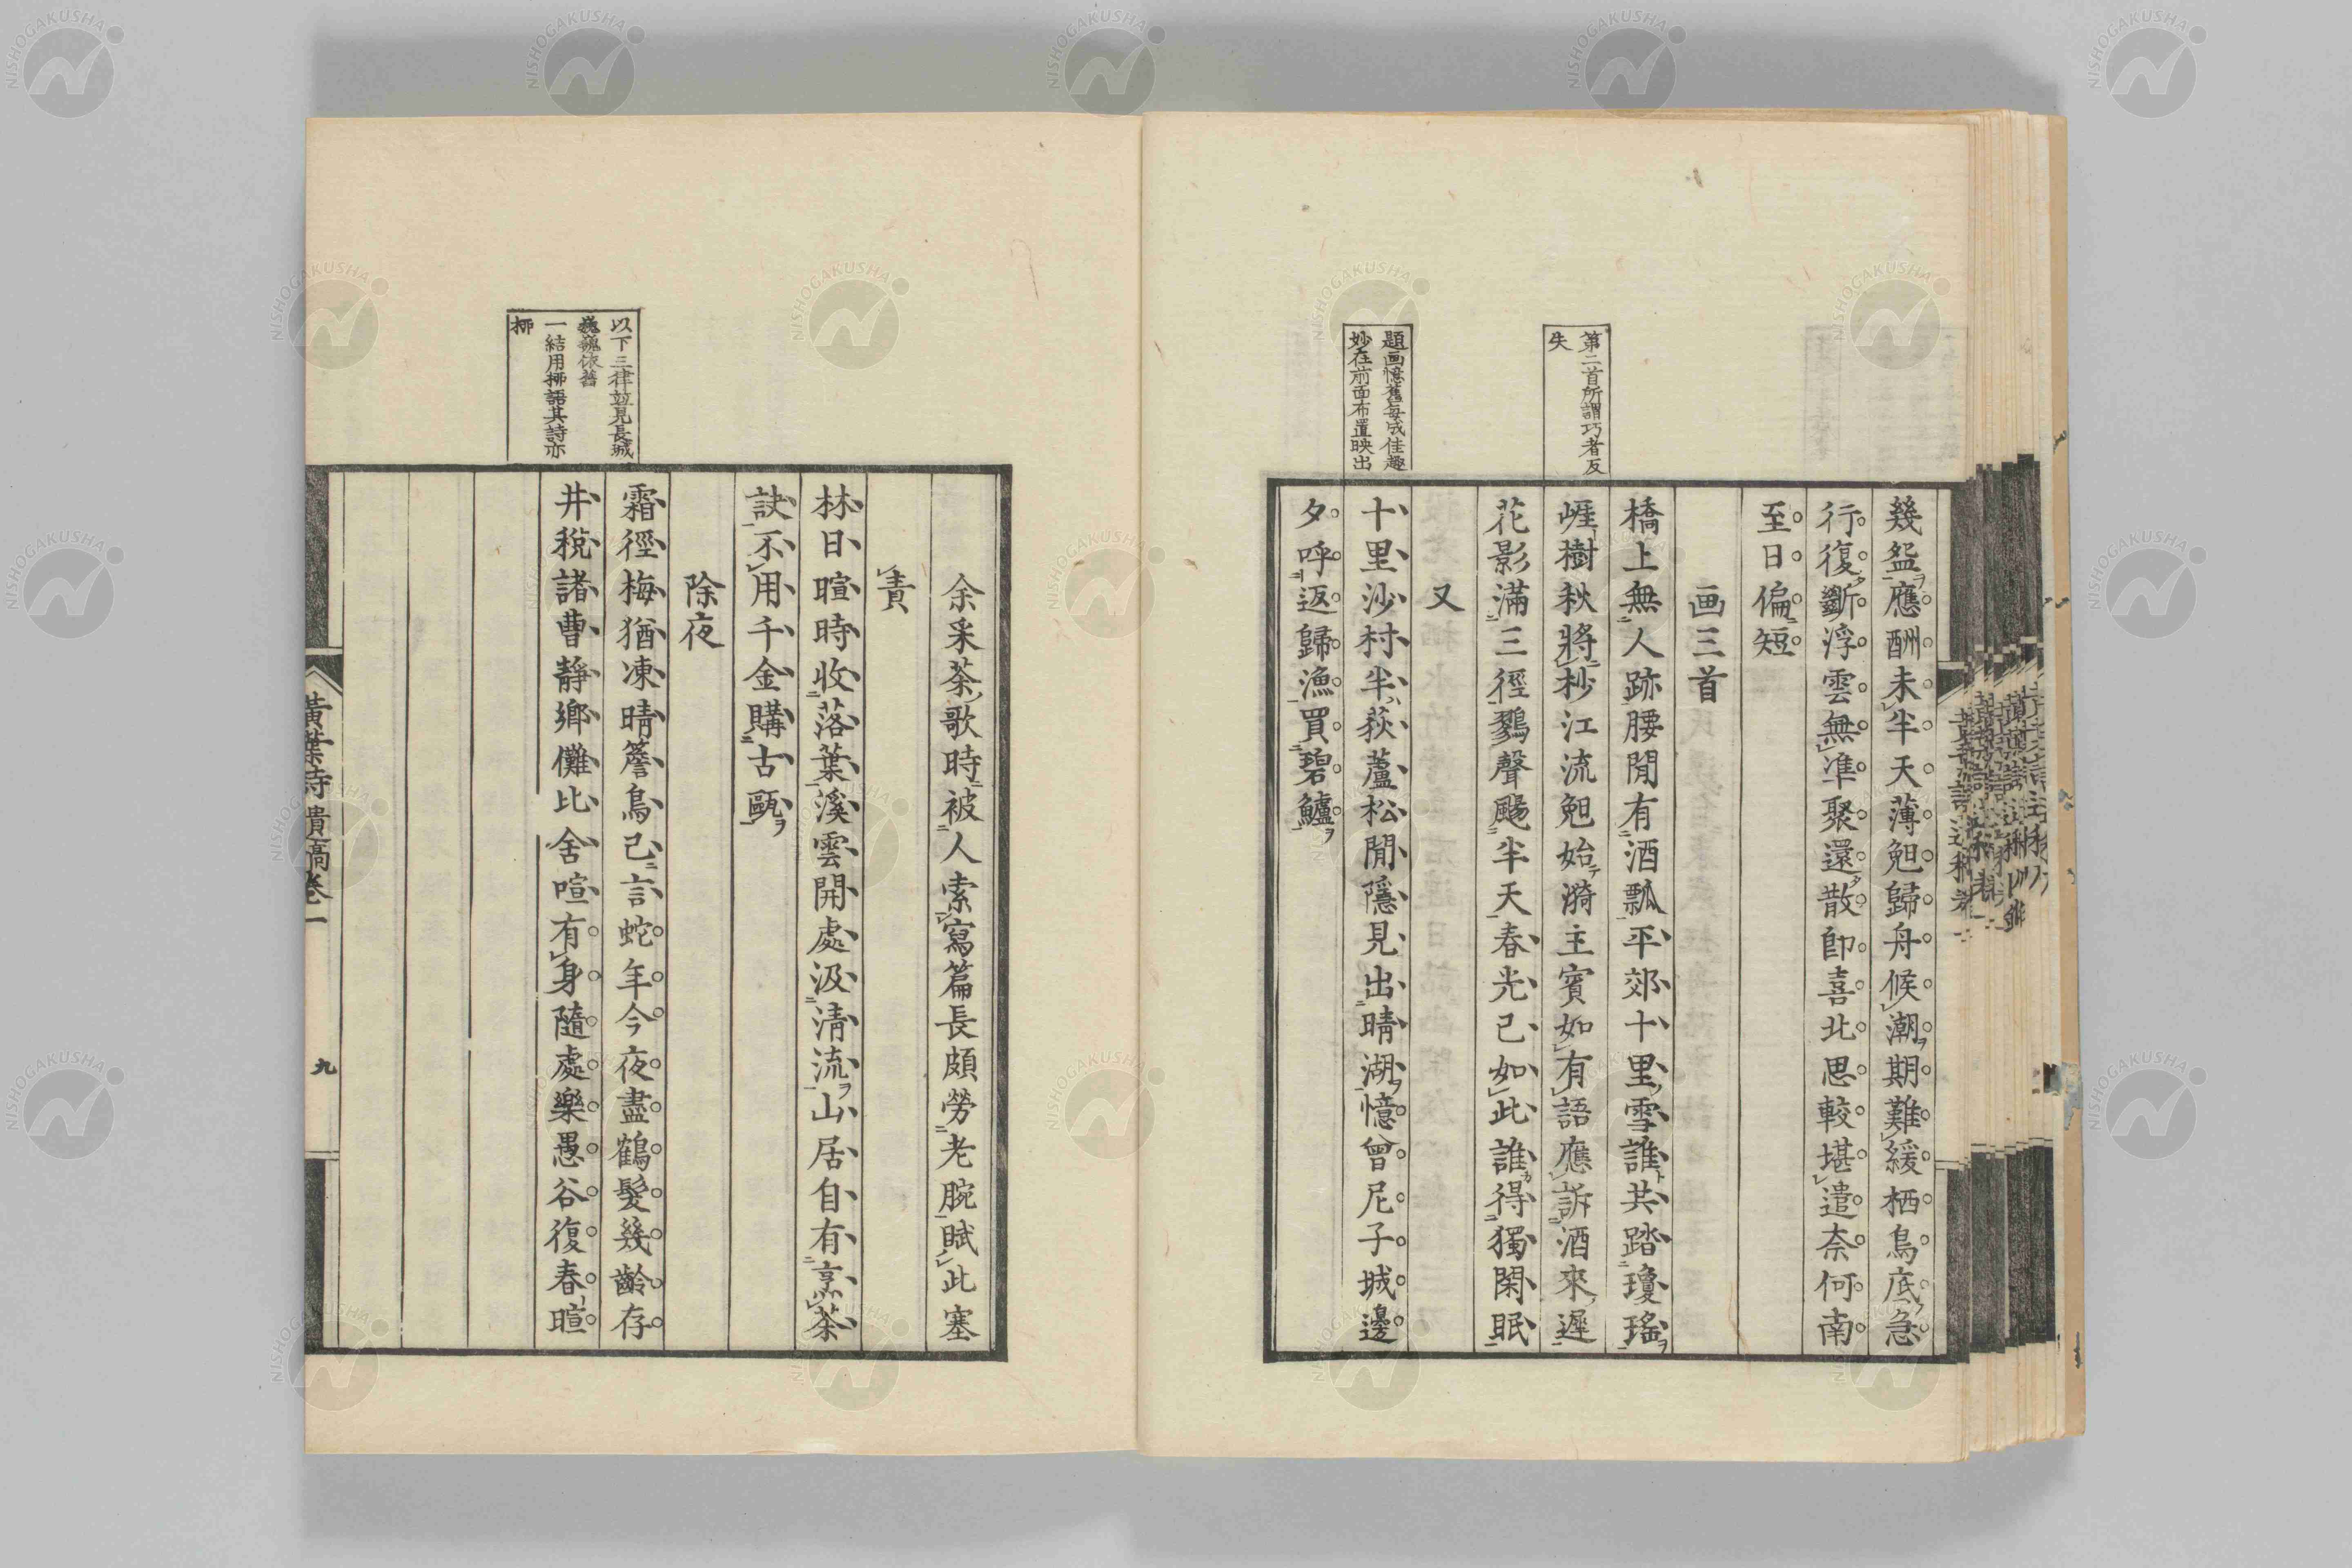 幾盌應酬未半天薄䑕歸舟候潮期難緩栖鳥底急
行復斷浮雲無準聚還散卽喜北思較堪遣奈何南
至日偏短
画三首
橋上無人跡腰間有酒瓢平郊十里雪誰共踏瓊瑤
崕樹秋將杪江流始漪主賓如有語應訴酒來遲
花影滿三徑鷄聲颺半天春光已如此誰得獨閑眠
又
十里沙村半荻蘆松間隱見出晴湖憶曾尼子城邊
夕呼返歸漁買碧鱸
第二首所謂巧者反
失
題画憶舊每成佳趣
妙在前面布置映出
余采茶歌時被人索寫篇長頗勞老腕賦此塞
責
林日暄時收落葉溪雲開處汲清流山居自有烹茶
訣不用千金購古甌
除夜
霜徑梅猶凍晴簷鳥已言蛇年今夜盡鶴髮幾齡存
井稅諸曹靜鄉儺比舍喧有身隨處樂愚谷復春暄
以下三律竝見長城
巍巍依舊
一結用挪語其詩亦
挪
黃葉詩遺稿卷一
九
NISHOGAKUSHA